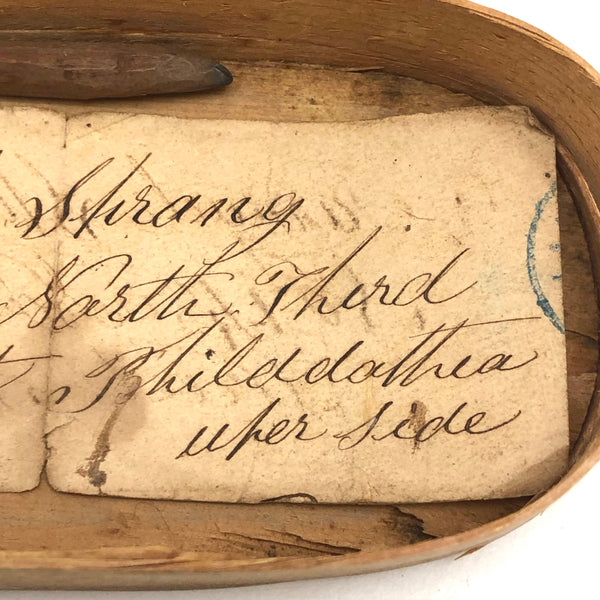 Sprang
North Third
Philddathea
uper side